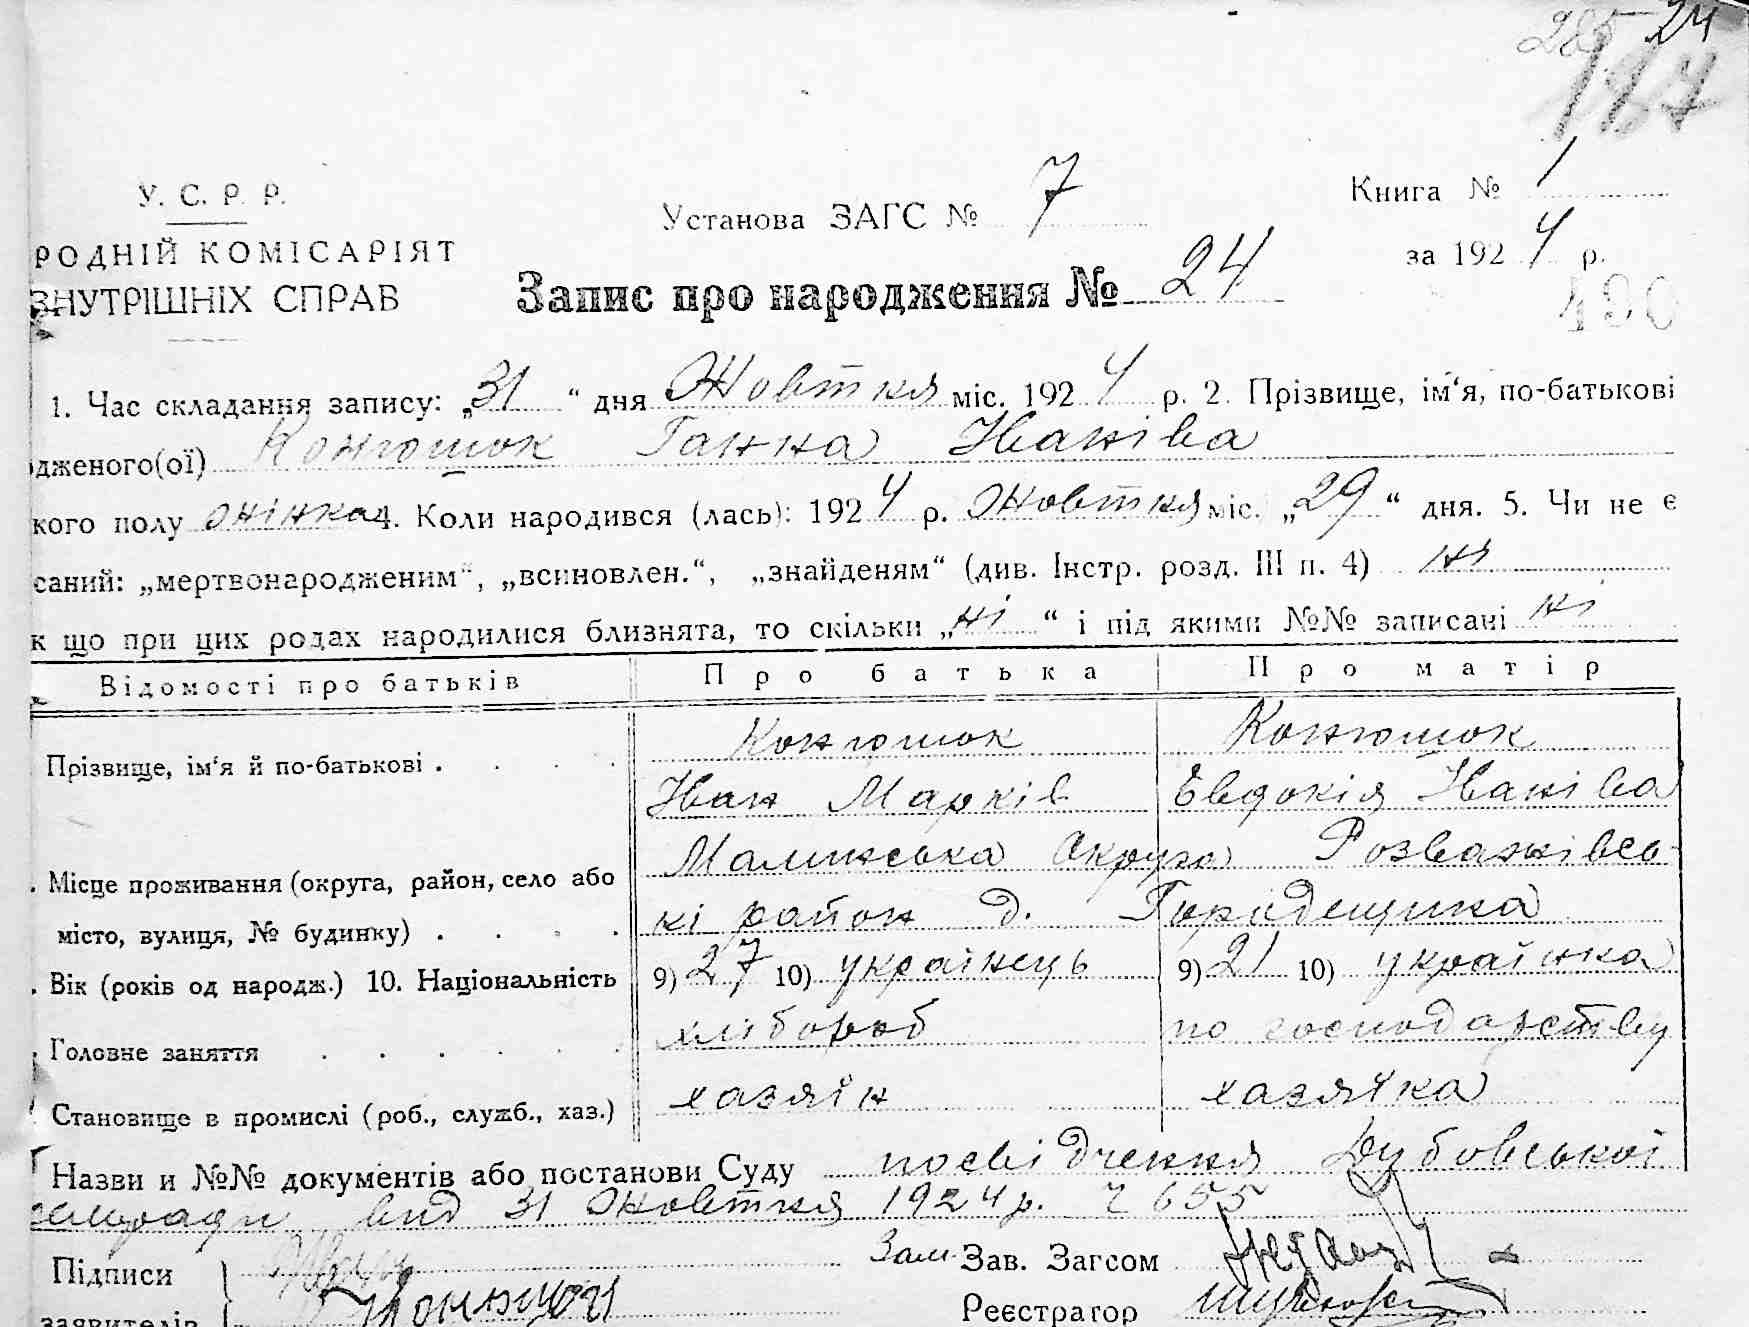 24
187
У. С. Р. Р.
РОДНІЙ КОМІСАРІЯТ
ВНУТРІШНІХ СПРАВ
Установа ЗАГС № 7
Книга № 1
за 1924 р.
Запис про народження № 24
190
1. Час складання запису: „31“ дня Жовтня міс. 1924 р. 2. Прізвище, ім‘я, по-батькові
дженого(ої) Конюшок Ганна Іванівна
кого полу жінка 4. Коли народився (лась): 1924 р. Жовтня міс. „29“ дня. 5. Чи не є
саний: „мертвонародженим“, „всиновлен.“, „знайденям“ (див. Інстр. розд. III п. 4) ні
к що при цих родах народилися близнята, то скільки „ні“ і під якими №№ записані ні
Відомості про батьків Про батька Про матір
Прізвище, ім‘я й по-батькові . Конюшок Конюшок
Іван Марків Евдокія Іванівна
. Місце проживання (округа, район, село або Малинська Округа Розважівсь-
місто, вулиця, № будинку) . кі район д. Городещина
. Вік (років од народж.) 10. Національність 9) 27 10) українець 9) 21 10) українка
Головне заняття хлібороб по господарству
Становище в промислі (роб., служб., хаз.) хазяїн хазяїка
Назви и №№ документів або постанови Суду посвідчення Дубовської
сельради від 31 Жовтня 1924 р. 655
Підписи Зам Зав. Загсом
заявителів Реєстратор